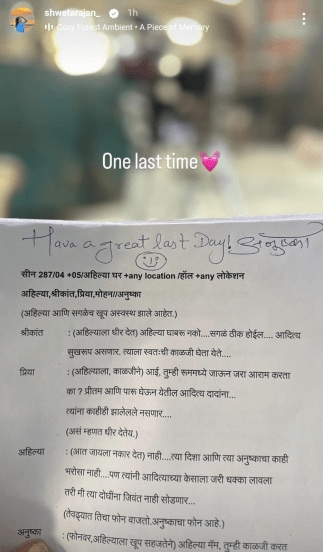 shwetarajan_ 1h
Cozy Forest Ambient • A Piece of Memory
One last time 💓
Have a great last Day! अनुष्का
सीन 287/04 +05/अहिल्या घर +any location /हॉल +any लोकेशन
अहिल्या,श्रीकांत,प्रिया,मोहन//अनुष्का
(अहिल्या आणि सगळेच खूप अस्वस्थ झाले आहेत.)
श्रीकांत : (अहिल्याला धीर देत) अहिल्या घाबरू नको....सगळं ठीक होईल.... आदित्य
सुखरूप असणार. त्याला स्वतःची काळजी घेता येते....
प्रिया : (अहिल्याला, काळजीने) आई, तुम्ही रूममध्ये जाऊन जरा आराम करता
का ? प्रीतम आणि पारू घेऊन येतील आदित्य दादांना...
त्यांना काहीही झालेलं नसणार....
(असं म्हणत धीर देतेय.)
अहिल्या : (आत जायला नकार देत) नाही....त्या दिशा आणि त्या अनुष्काचा काही
भरोसा नाही....पण त्यांनी आदित्याच्या केसाला जरी धक्का लावला
तरी मी त्या दोघींना जियंत नाही सोडणार...
(तेवढ्यात तिचा फोन वाजतो.अनुष्काचा फोन आहे.)
अनुष्का : (फोनवर,अहिल्याला खूप सहजतेने) अहिल्या मॅम, तुम्ही काळजी करत